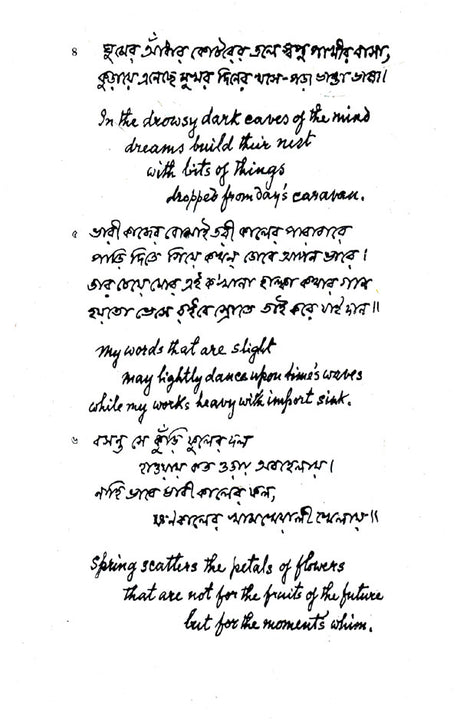 ৪ ঘুমের আঁধার কোটরের তলে স্বপ্ন পাখীর বাসা,
কুড়ায়ে এনেছে মুখর দিনের খসে-পড়া ভাঙা ভাষা।
In the drowsy dark caves of the mind
dreams build their nest
with bits of things
dropped from day's caravan.
৫ ভারী কাজের বোঝাই তরী কালের পারাবারে
পাড়ি দিতে গিয়ে কখন ডোবে আপন ভারে।
তার চেয়ে মোর এই ক'খানা হাল্কা কথার গান
হয়তো ভেসে রইবে স্রোতে তাই করে যাই দান॥
My words that are slight
may lightly dance upon time's waves
while my works heavy with import sink.
৬ বসন্ত সে কুঁড়ি ফুলের দল
হাওয়ায় কত ওড়ায় অবহেলায়।
নাহি ভাবে ভাবী কালের ফল,
ক্ষণকালের খামখেয়ালী খেলায়॥
Spring scatters the petals of flowers
that are not for the fruits of the future
but for the moment's whim.